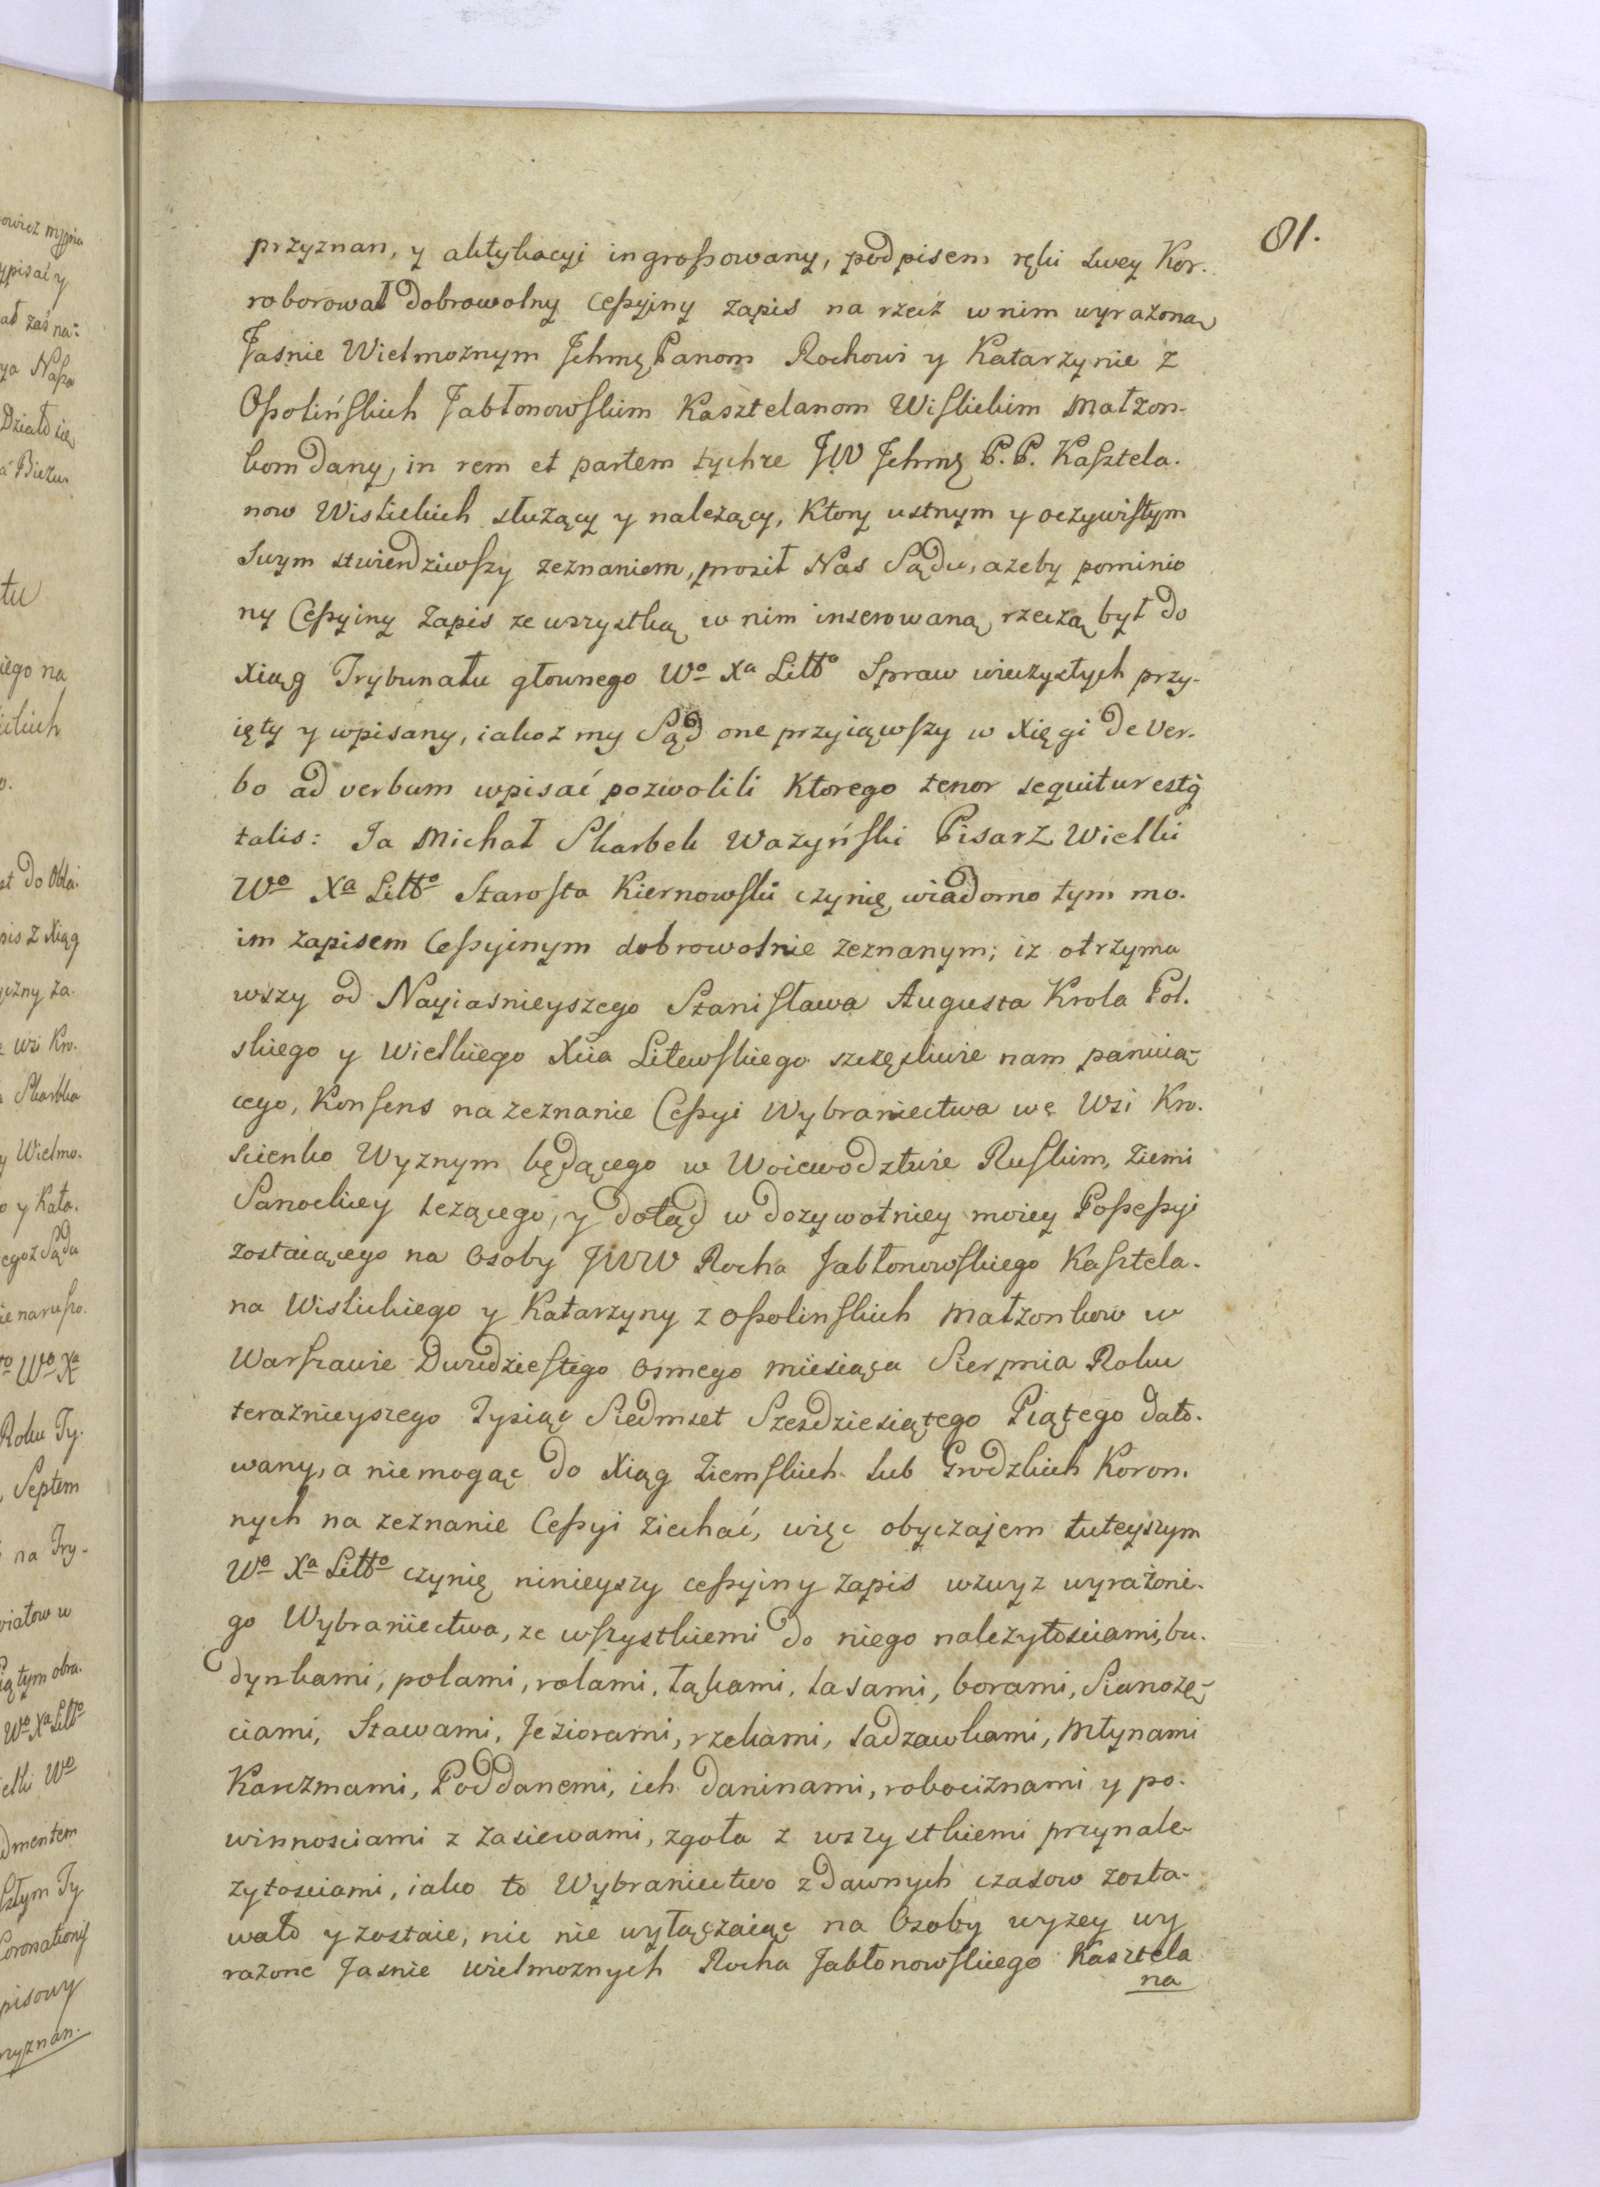 81.
przyznan, y aktykacyi ingrossowany, podpisem ręki swey Kor.
roborował dobrowolny Cessyiny zapis na rzecz w nim wyrażoną
Jaśnie Wielmoznym Ichmę Panom Rochowi y Katarzynie z
Ossolińskich Jabłonowskim Kasztelanom Wislickim Małzon-
kom dany, in rem et partem tychze JW Ichmę P.P. Kasztela.
now Wislickich służący y należący, Ktory ustnym y oczywistym
swym stwierdziwszy zeznaniem, prosił Nas Sądu, azeby pominio
ny Cessyiny Zapis ze wszystką w nim inserowaną rzeczą był do
Xiąg Trybunału głownego Wo Xa Litto Spraw wieczystych przy-
ięty y wpisany, iakoz my Sąd one przyiąwszy w Xięgi de Ver.
bo ad verbum wpisać pozwolili Ktorego tenor sequitur estq
talis: Ja Michał Skarbek Ważyński Pisarz Wielki
Wo Xa Litto Starosta Kiernowski czynię wiadomo tym mo.
im zapisem Cessyinym dobrowolnie zeznanym; iz otrzyma
wszy od Nayiasnieyszego Stanisława Augusta Krola Pol.
skiego y Wielkiego Xcia Litewskiego szczęsliwie nam panuią-
cego, Konsens na zeznanie Cessyi Wybraniectwa wę Wsi Kro.
scienko Wyznym będącego w Woiewodztwie Ruskim, Ziemi
Sanockiey leżącego, y dotąd w dozywotniey moiey Possessyi
zostaiącego na Osoby JWW Rocha Jabłonowskiego Kasztela.
na Wislickiego y Katarzyny z Ossolinskich Małzonkow w
Warszawie Dwudziestego osmego miesiąca Sierpnia Roku
teraznieyszego Tysiąc Siedmset Szesdziesiątego Piątego dato.
wany, a niemogąc do Xiąg Ziemskich lub Grodzkich Koron.
nych na zeznanie Cessyi ziechać, więc obyczajem tuteyszym
Wo Xa Litto czynię ninieyszy cessyiny zapis wzwyz wyrażone.
go Wybraniectwa, ze wszystkiemi do niego należytosciami, bu.
dynkami, polami, rolami, łąkami, lasami, borami, Sianożę-
ciami, Stawami, Jeziorami, rzekami, sadzawkami, Młynami
Karczmami, Poddanemi, ich daninami, robociznami y po.
winnosciami z zasiewami, zgoła z wszystkiemi przynale-
zytosciami, iako to Wybraniectwo z dawnych czasow zosta.
wało y zostaie, nic nie wyłączaiąc na Osoby wyzey wy
rażone Jasnie wielmoznych Rocha Jabłonowskiego Kasztela
na